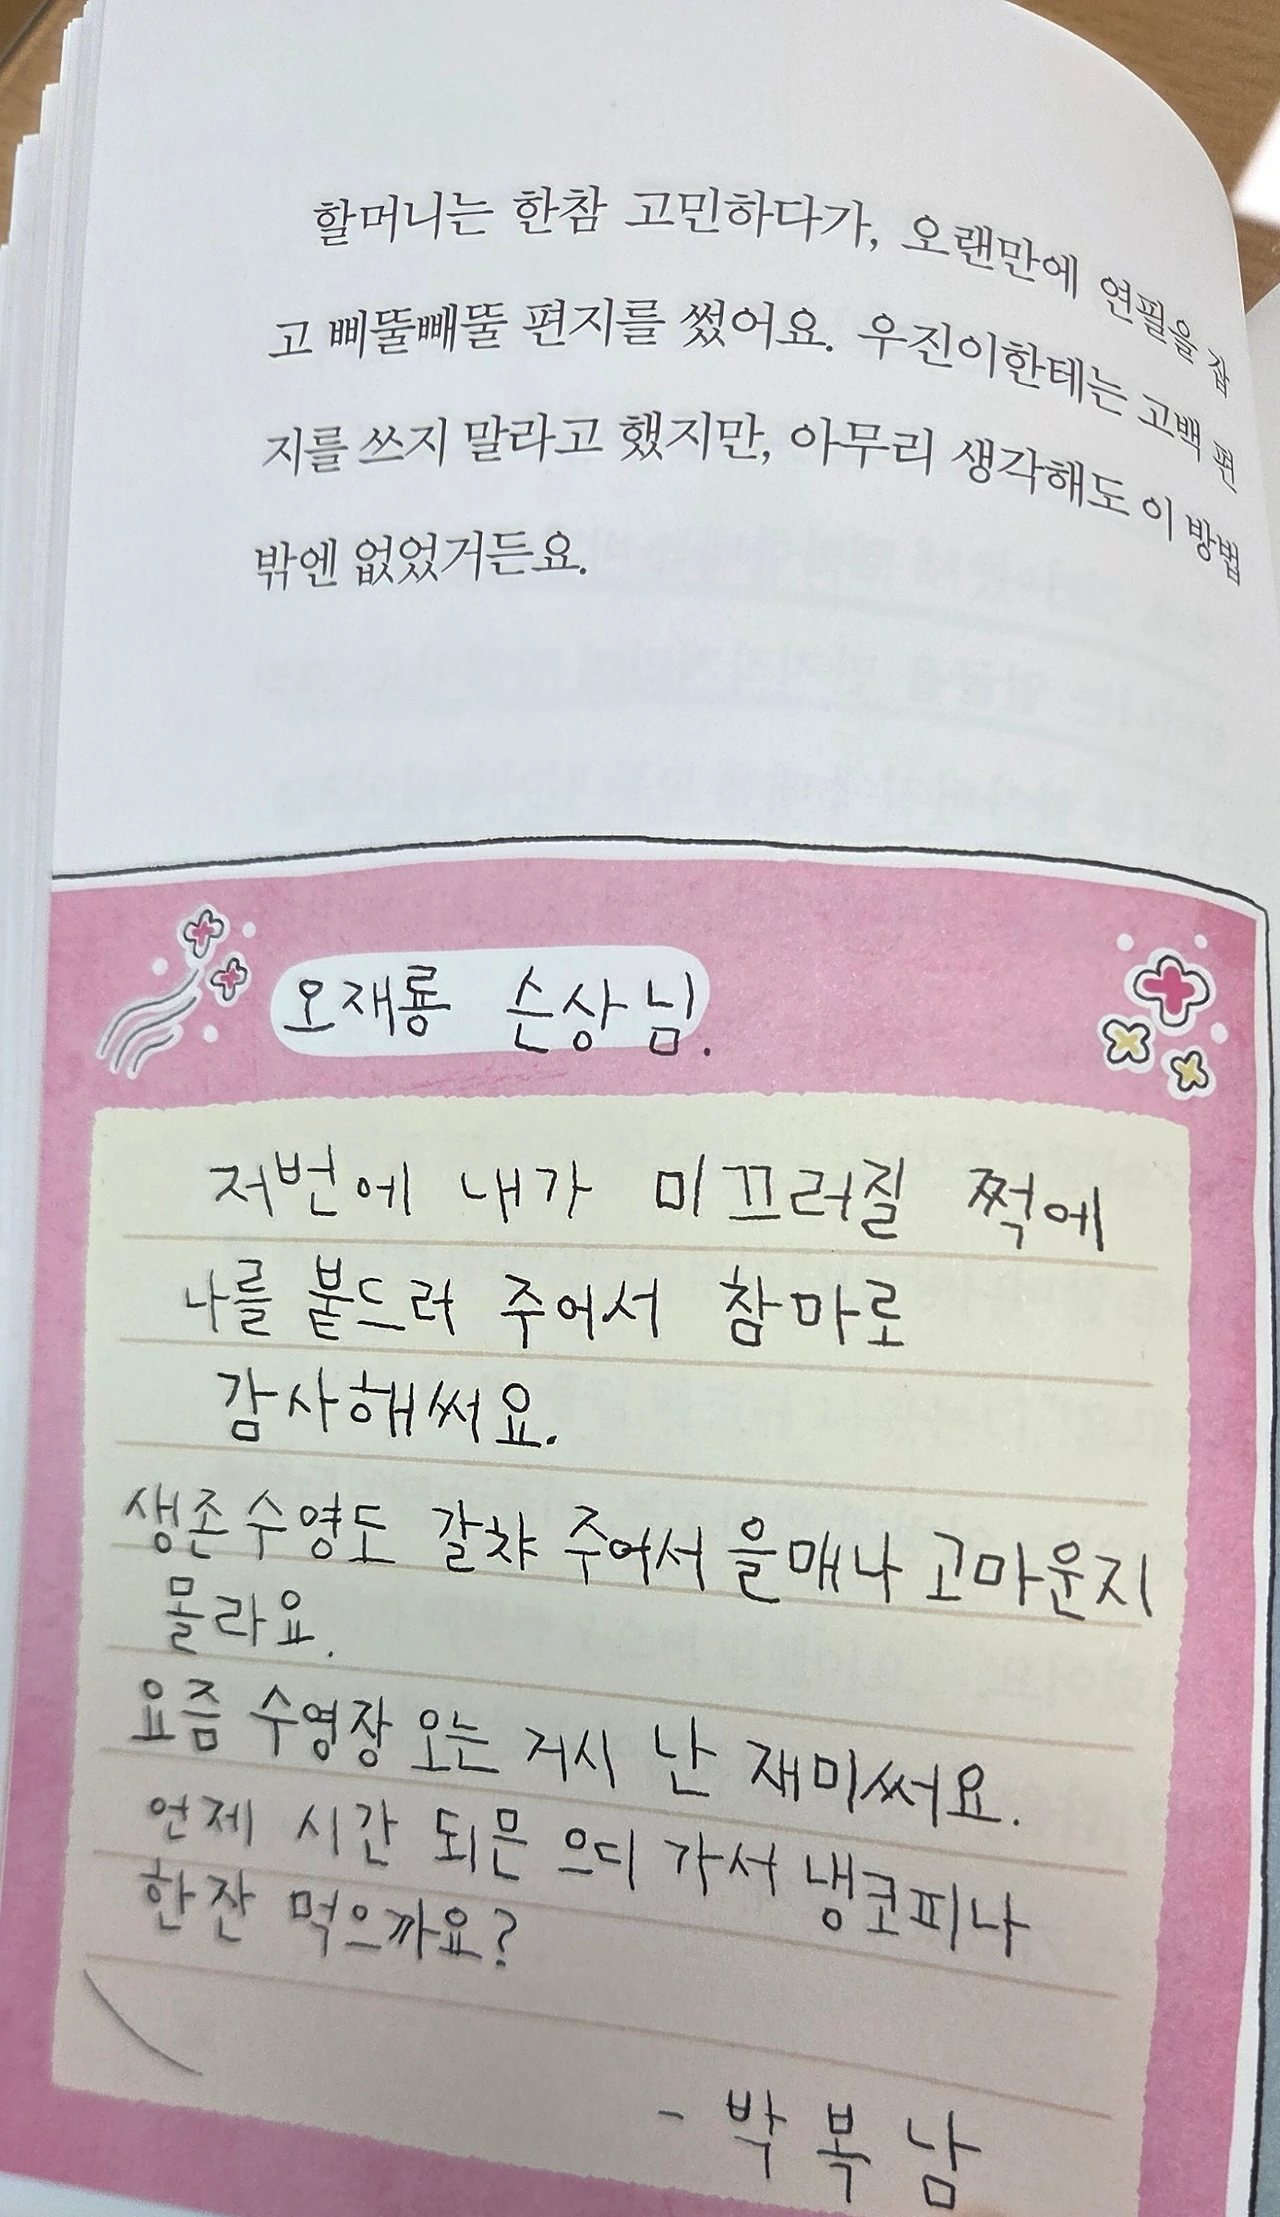 할머니는 한참 고민하다가, 오랜만에 연필을 잡
고 삐뚤빼뚤 편지를 썼어요. 우진이한테는 고백 편
지를 쓰지 말라고 했지만, 아무리 생각해도 이 방법
밖엔 없었거든요.
오재룡 슨상님.
저번에 내가 미끄러질 쩍에
나를 붙드러 주어서 참마로
감사해써요.
생존수영도 갈챠 주어서 을매나 고마운지
몰라요.
요즘 수영장 오는 거시 난 재미써요.
언제 시간 되믄 으디 가서 냉코피나
한잔 먹으까요?
- 박복남